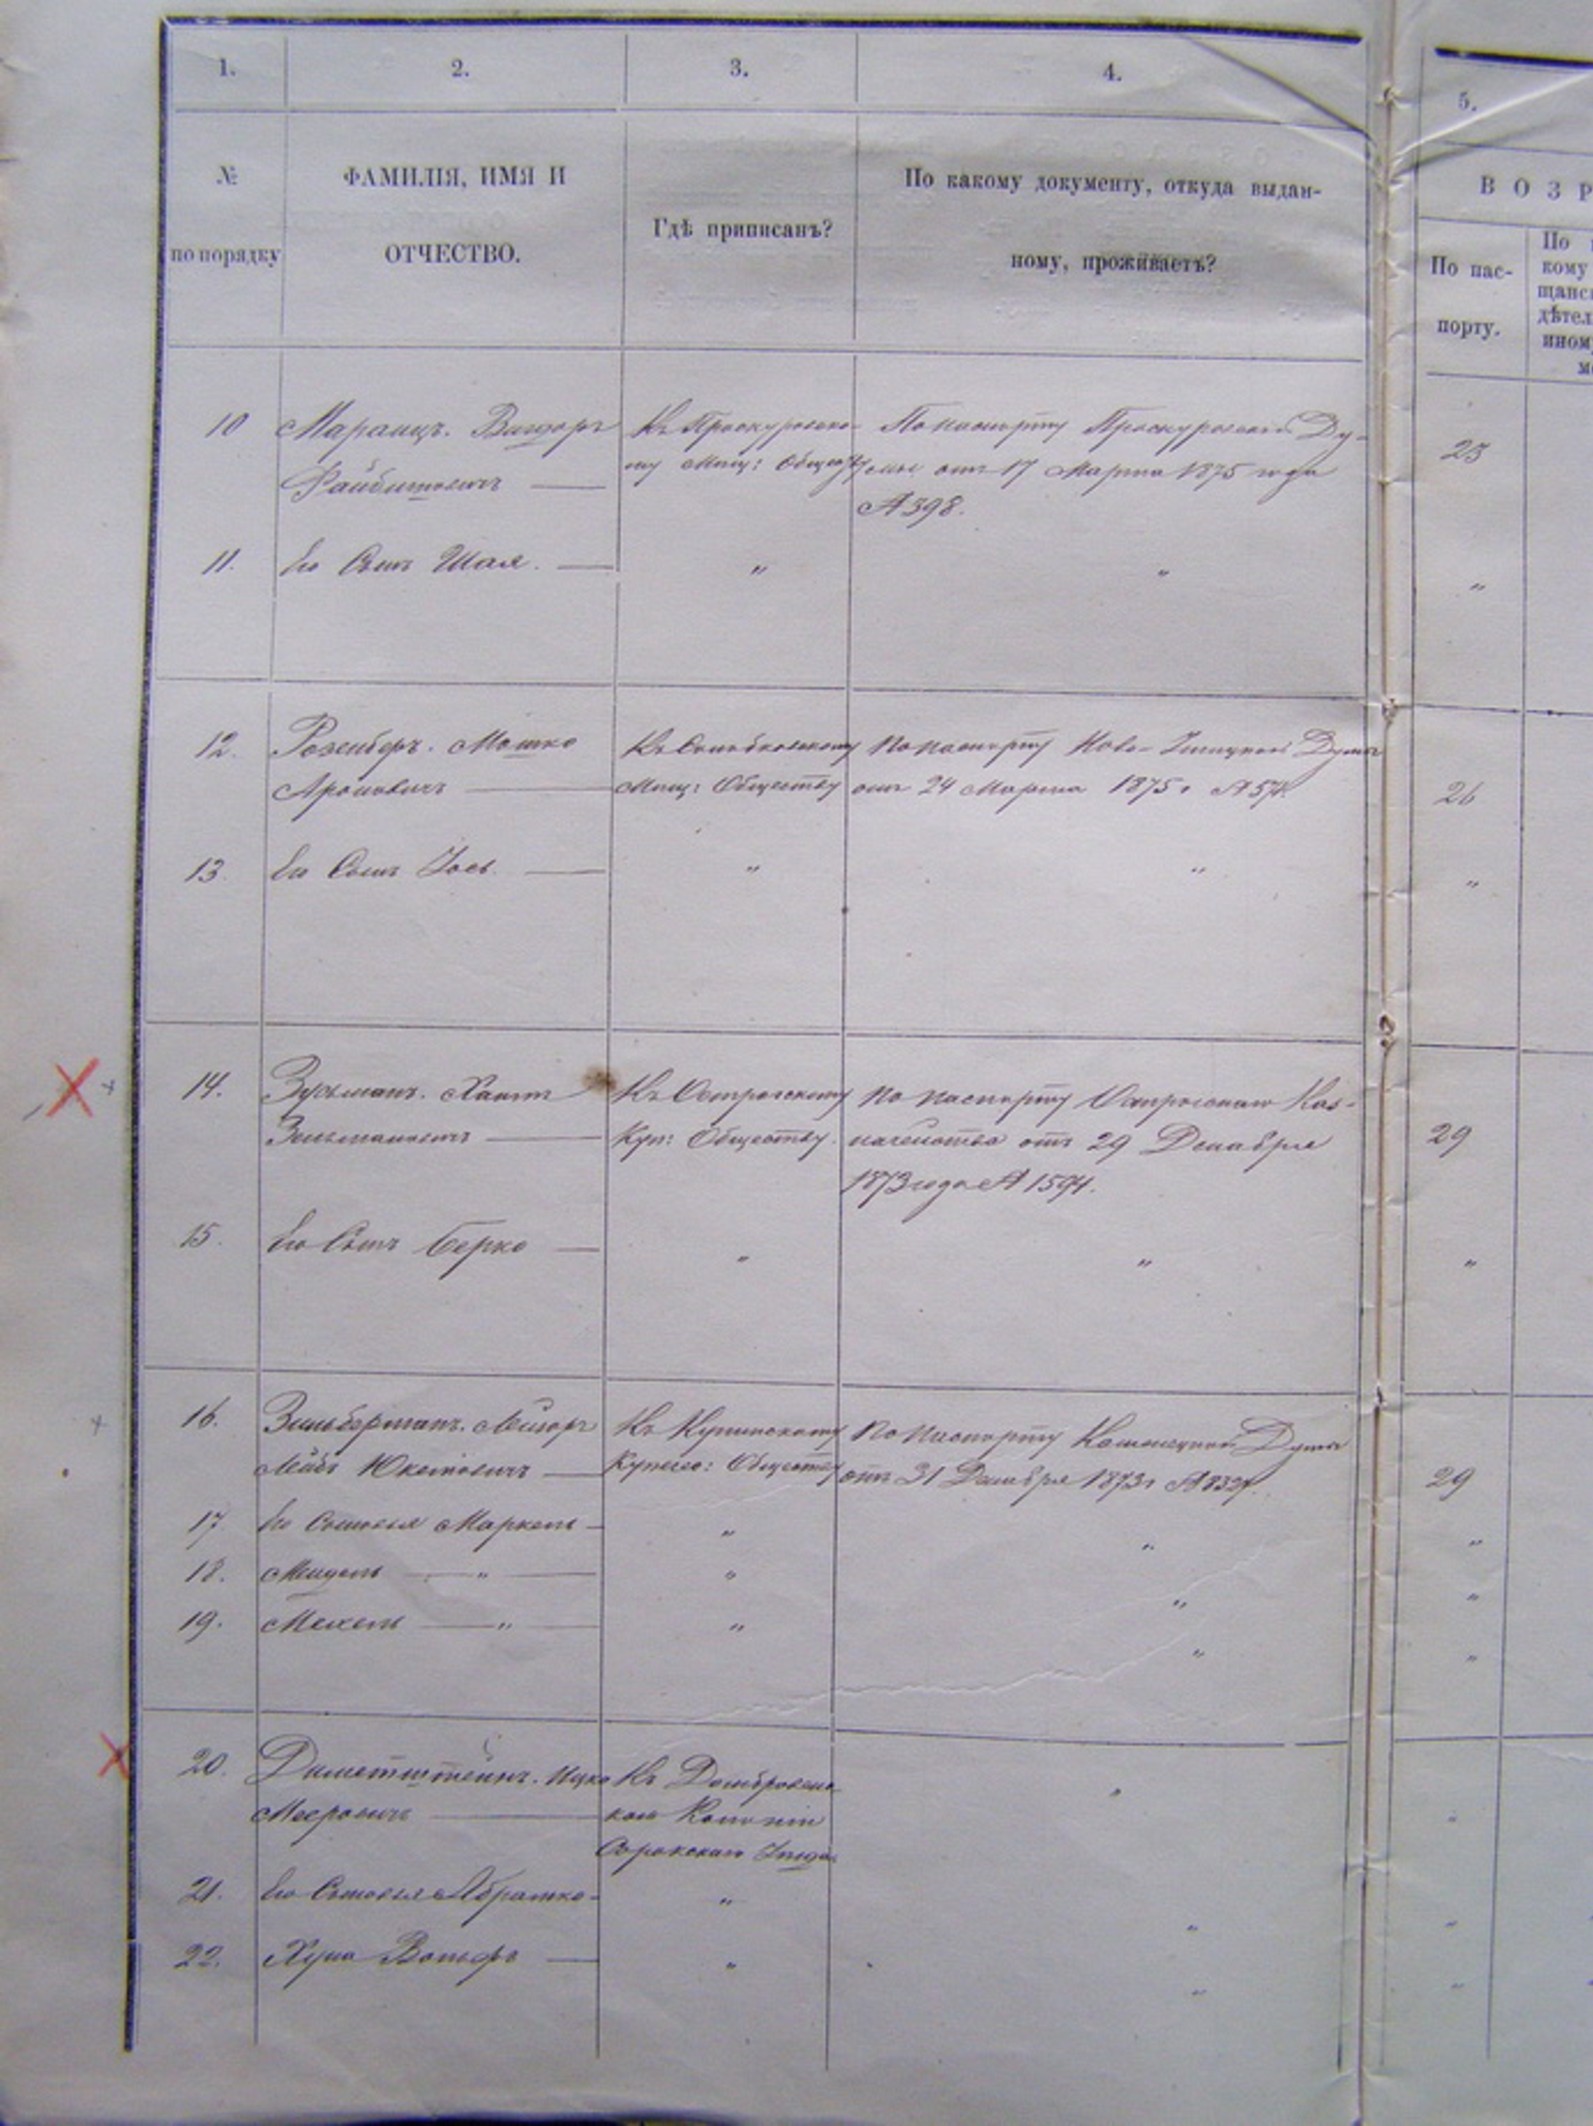 1.
2.
3.
4.
5.
№
по порядку
ФАМИЛІЯ, ИМЯ И
ОТЧЕСТВО.
Гдѣ приписанъ?
По какому документу, откуда выдан-
ному, проживаетъ?
ВОЗР
По пас-
порту.
По
кому
щанс
дѣтел
ином
10
Маранцъ. Вигдоръ
Файбишовичъ
Къ Проскуровско-
му Мѣщ: Обществу
По паспорту Проскуровской Ду-
мы отъ 17 Марта 1875 года
№ 398.
23
11.
Его Сынъ Шая.
"
"
"
12.
Розенберъ. Мошко
Ароновичъ
Къ
Мѣщ: Обществу
По паспорту Ново- Думы
отъ 24 Марта 1875 г № 574.
26
13.
Его Сынъ Іось.
"
"
"
14.
Зусьманъ. Хаимъ
Зельмановичъ
Къ Острогскому
Куп: Обществу.
По паспорту Острогскаго Каз-
начейства отъ 29 Декабря
1873 года № 1594.
29
15.
Его Сынъ Берко
"
"
"
16.
Зильберманъ. Меіоръ
Лейбъ
Къ Купинскому
Купеч: Обществу
По паспорту Каменецкой Думы
отъ 31 Декабря 1873 г № 832
29
17
Его Сыновья Маркель
"
"
"
18.
"
"
"
"
19.
Мехель "
"
"
"
20.
Ицко
Мееровичъ
Къ Домбровено-
кой Колоніи
Сорокскаго Уѣзда
"
"
21.
Его Сыновья Абрамко
"
"
"
22.
Хуна Вольфъ
"
"
"